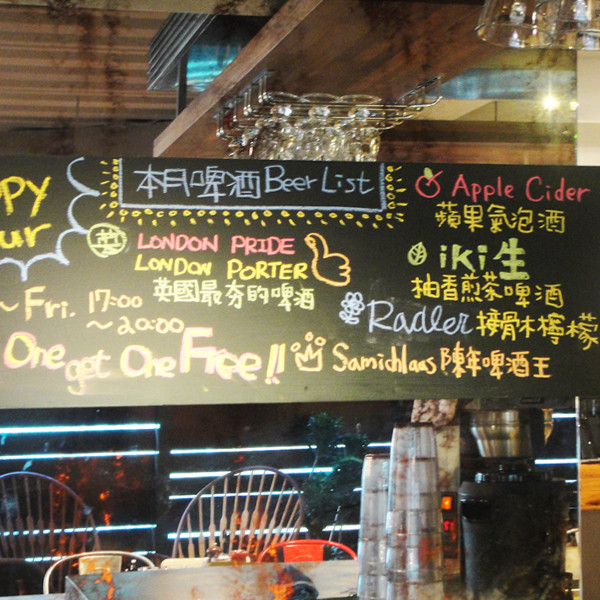 PPY
ur
~Fri. 17:00
~20:00
One get One Free!!
本月啤酒 Beer List
英
LONDON PRIDE
LONDON PORTER
英國最夯的啤酒
Apple Cider
蘋果氣泡酒
iki生
柚香煎茶啤酒
Radler 接骨木檸檬
Samichlaas 陳年啤酒王